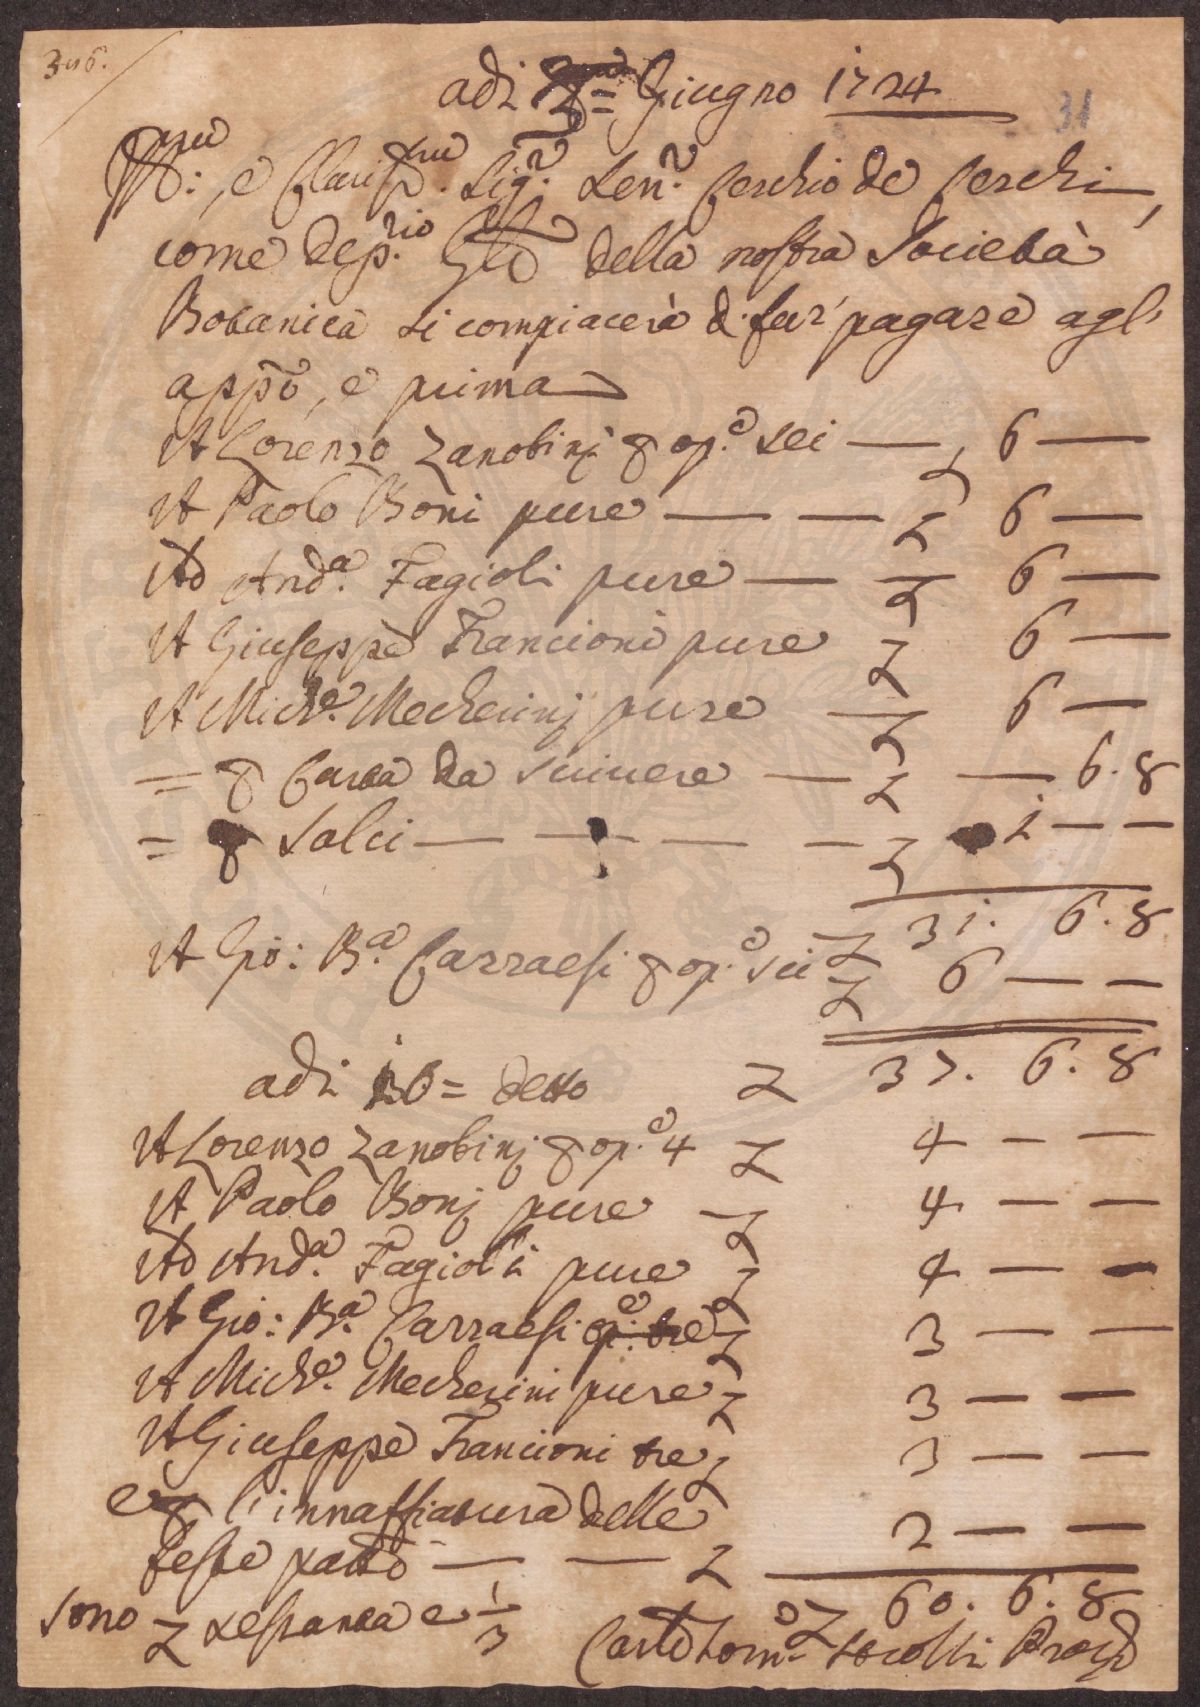 346.
31
adi = Giugno 1724
e Clariss.mo Sig.r Sen.r Cerchio de Cerchi
come dep.rio Gle della nostra Società
Botanica si compiacerà di far' pagare agl'
app.o, e prima
A Lorenzo Zanobinj p op.e sei — £ 6 —
A Paolo Boni pure — — £ 6 —
Ad And.a Fagioli pure — £ 6 —
A Giuseppe Francioni pure £ 6 —
A Mich.e Mecherinj pure — £ 6 —
= p Carta da scrivere — £ — 6. 8
= p Salci — — — — £ 1 — —
£ 31. 6. 8
A Gio: B.a Carraesi p op.e sei £ 6 — —
adi 16 = detto £ 37. 6. 8
A Lorenzo Zanobinj p op.e 4 £ 4 — —
A Paolo Bonj pure £ 4 — —
Ad And.a Fagioli pure £ 4 — —
A Gio: B.a Carraesi op.e tre £ 3 — —
A Mich.e Mecherini pure £ 3 — —
A Giuseppe Francioni tre £ 3 — —
e p l'innaffiatura delle
feste patto — — £ 2 — —
£ 60. 6. 8
Sono £ sessanta e 1/3